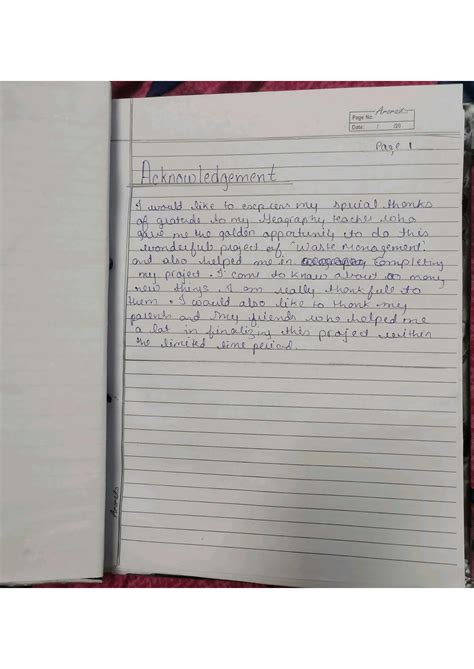 Page No.
Date: / /20
Page 1
Acknowledgement
I would like to express my special thanks
of gratitude to my Geography teacher who
gave me the golden opportunity to do this
wonderful project of "Waste Management"
and also helped me in completing
my project. I came to know about so many
new things. I am really thankfull to
them. I would also like to thank my
parents and my friends who helped me
a lot in finalizing this project within
the limited time period.